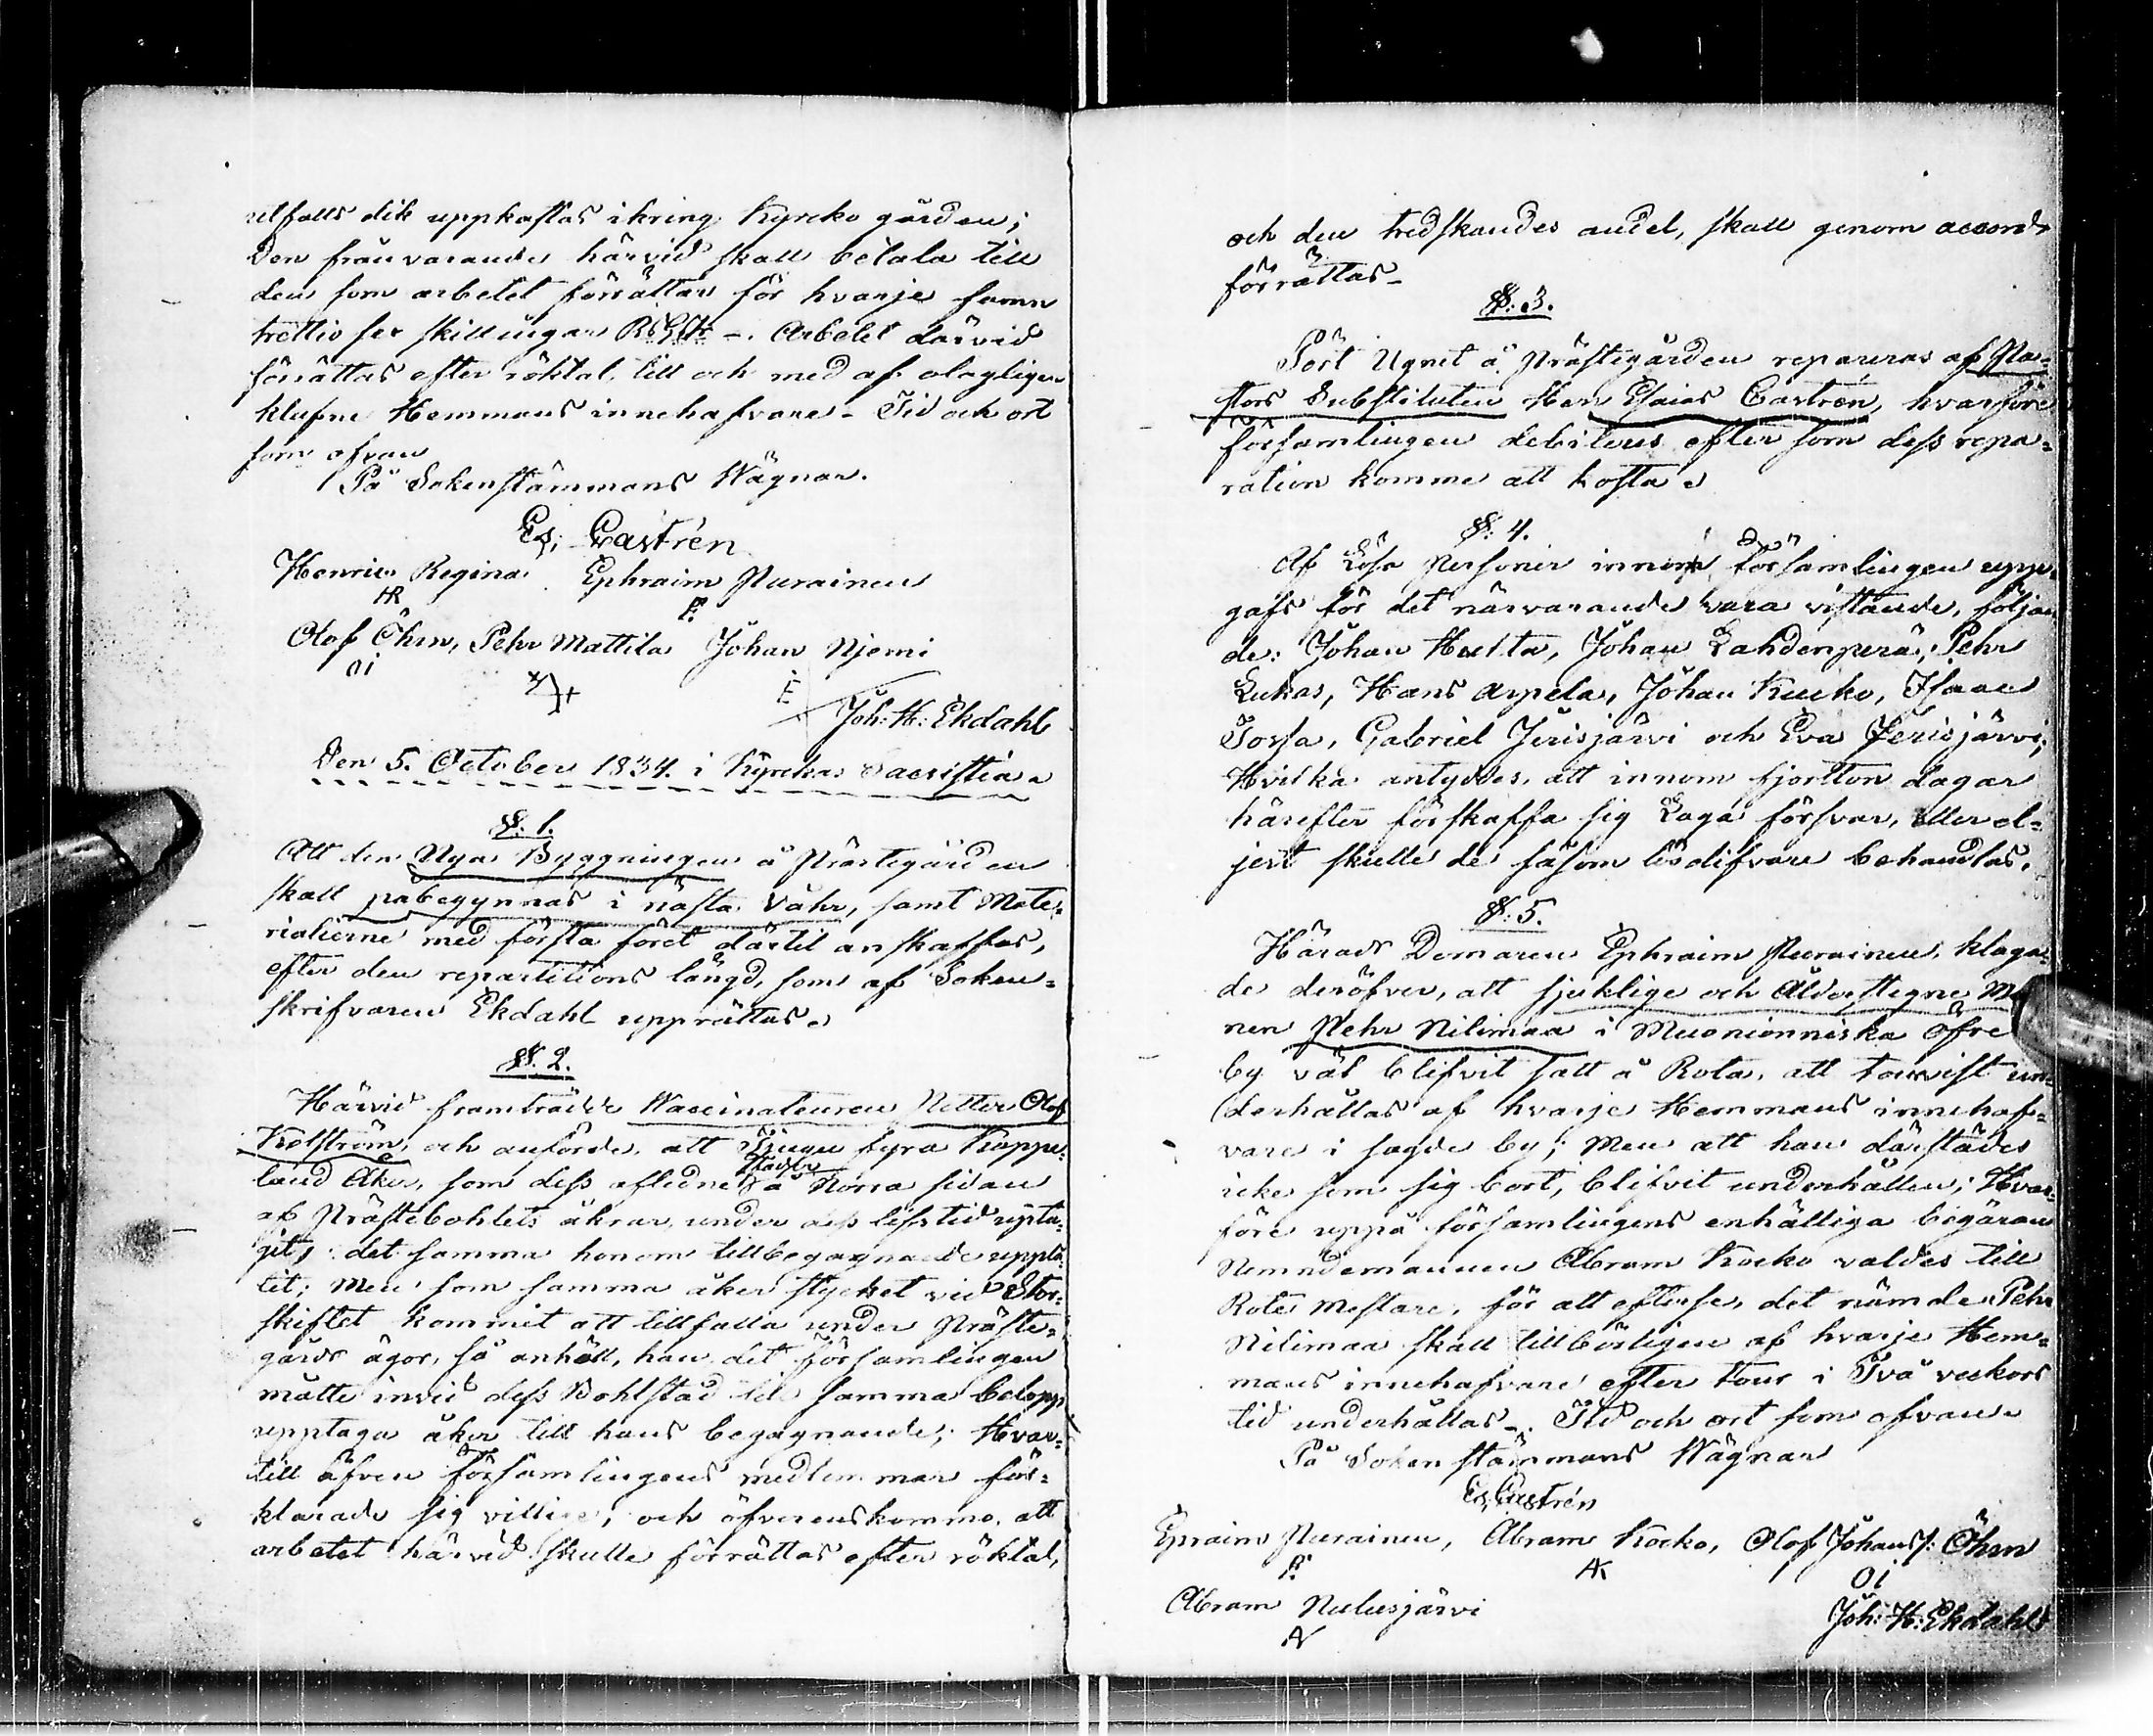 utfalls dik uppkastas ikring Kyrcko gården;
Den frånvarande härvid skall betala till
den som arbetet förrättar för hvarje famn
trettio sex skillingar RGS -. Arbetet därvid
förrättas efter röktal, till och med af olagligen
klufne Hemmans innehafvare - Tid och ort
som ofvan
På Sokenstämmans Wägnar.
Es; Castrén
Henric Regina Ephraim Purainen
HR P.
Olof Öhrn, Pehr Mattila Johan Njemi
OI
Joh: H: Ekdahl
Den 5. October 1834. i Kyrckas Sacristia
§: 1.
Att den Nya Byggningen å Prästegården
skall påbegynnas i nästa Våhr, samt Mate-
rialierne med första föret därtil anskaffas,
efter den repartitions längd, som af Soken-
skrifvaren Ekdahl upprättas
§. 2.
Härvid framträdde Vaccinateuren Petter Olof
Kelström, och anförde, att Tjugu fyra Kappe-
land Åker, som dess aflidne Fader å Norra sidan
af Präståbohlets åkrar under dess lifstid upta-
git, det samma honom till begagnande upplå-
tit; Men som samma åker stycket vid Stor-
skiftet kommit att tillfalla under Präste-
gårds ägor, så anhöll, han det församlingen
måtte invid dess Bohlstad till samma belopp
upptaga åker till hans begagnande; Hvar-
till äfven församlingens medlemmar för-
klarade sig villige, och öfverenskommo, att
arbetet härvid skulle förrättas efter röktal,
och den tredskandes andel, skall genom accord
förrättas-
§: 3.
Pört Ugnet å Prästegården repareras af Pa-
stors Substituten Herr Esaias Castrén, hvarföre
församlingen debiteras efter som dess repa-
ration komme att kosta
§: 4.
Af Lösa Personer innom församlingen upp-
gafs för det närvarande vara vistande, följan
de: Johan Hutta, Johan Lahdenperä, Pehr
Lukas, Hans Arpela, Johan Kucko, Isaac
Tossa, Gabriel Jerisjärvi och Eva Jerisjärvi;
Hvilka antyddes, att innom fjortton dagar
härefter förskaffa sig Laga försvar, eller el-
jest skulle de såsom lösdrifvare behandlas.
§: 5.
Härads Domaren Ephraim Purainen, klaga-
de deröfver, att sjuklige och Ålderstegne
nen Pehr Nilimaa i Muonionniska Öfre
by väl blifvit satt å Rota, att tourvist un-
derhållas af hvarje Hemmans innehaf-
vare i sagde by; Men att han därstädes
icke som sig bort, blifvit underhållen; Hvar-
före uppå församlingens enhälliga begäran
Nemndemannen Abram Kocko valdes till
Rote Mestare, för att efterse, det nämde Pehr
Nilimaa skall tillbörligen af hvarje Hem-
mans innehafvare efter tour i Två veckors
tid underhållas -. Tid och ort som ofvan
På Soken stämmans Wägnar
Es; Castrén
Epraim Purainen, Abram Kocko, Olof Johans/: Öhrn
P. AK OI
Abram Nulusjärvi
AN
Joh: H: Ekdahl